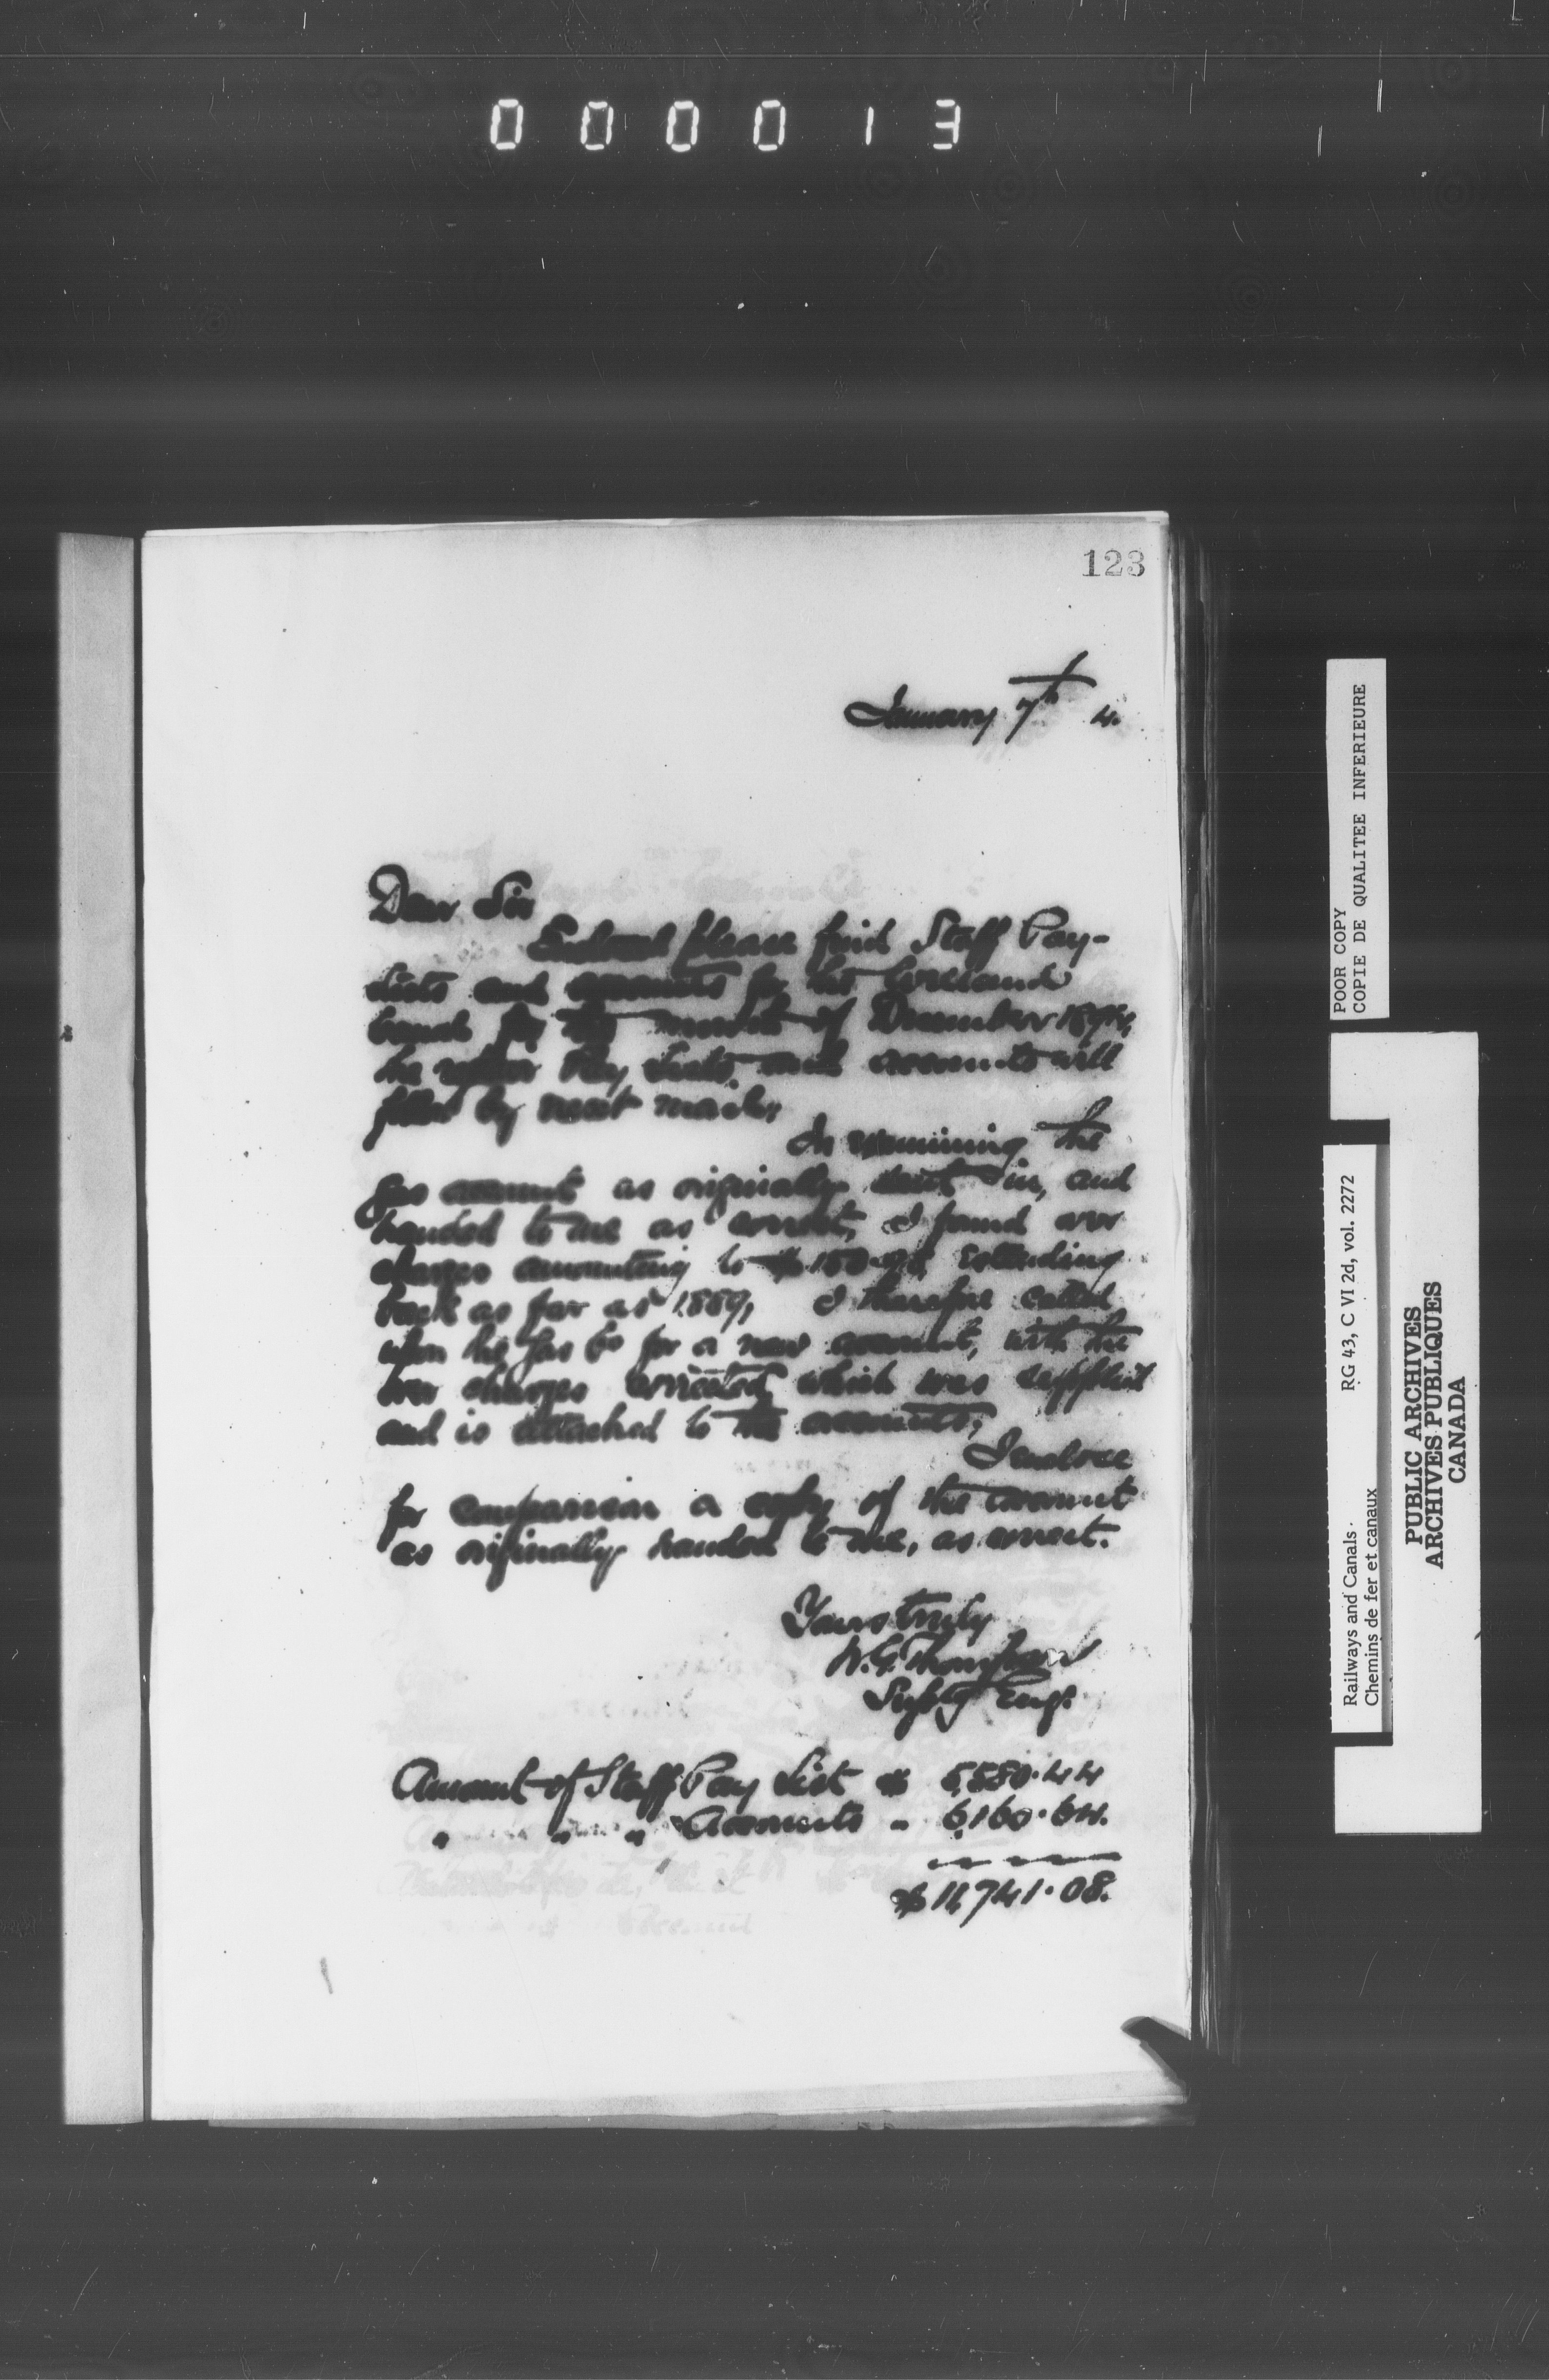 000013
123
January 7th 4.
Dear Sir
Enclosed please find Staff Pay-
Lists and accounts for the Welland
Canal for the month of December
the Pay Lists and accounts will
by next mail,
In examining the
Gas account as originally sent in, and
handed to me as correct, I found over
charges amounting to $ extending
back as far as 1889, I therefore called
upon the Gas Co for a new account, with the
over charges corrected, which was supplied
and is attached to the accounts,
I enclose
for comparison a copy of the account
as originally handed to me, as correct.
Yours truly
W.G. Thompson
Supt'g Eng.
Amount of Staff Pay List $ 5,580.44
" " " Accounts " 6,160.64.
$ 11,741.08.
POOR COPY
COPIE DE QUALITEE INFERIEURE
Railways and Canals
Chemins de fer et canaux
RG 43, C VI 2d, vol. 2272
PUBLIC ARCHIVES
ARCHIVES PUBLIQUES
CANADA